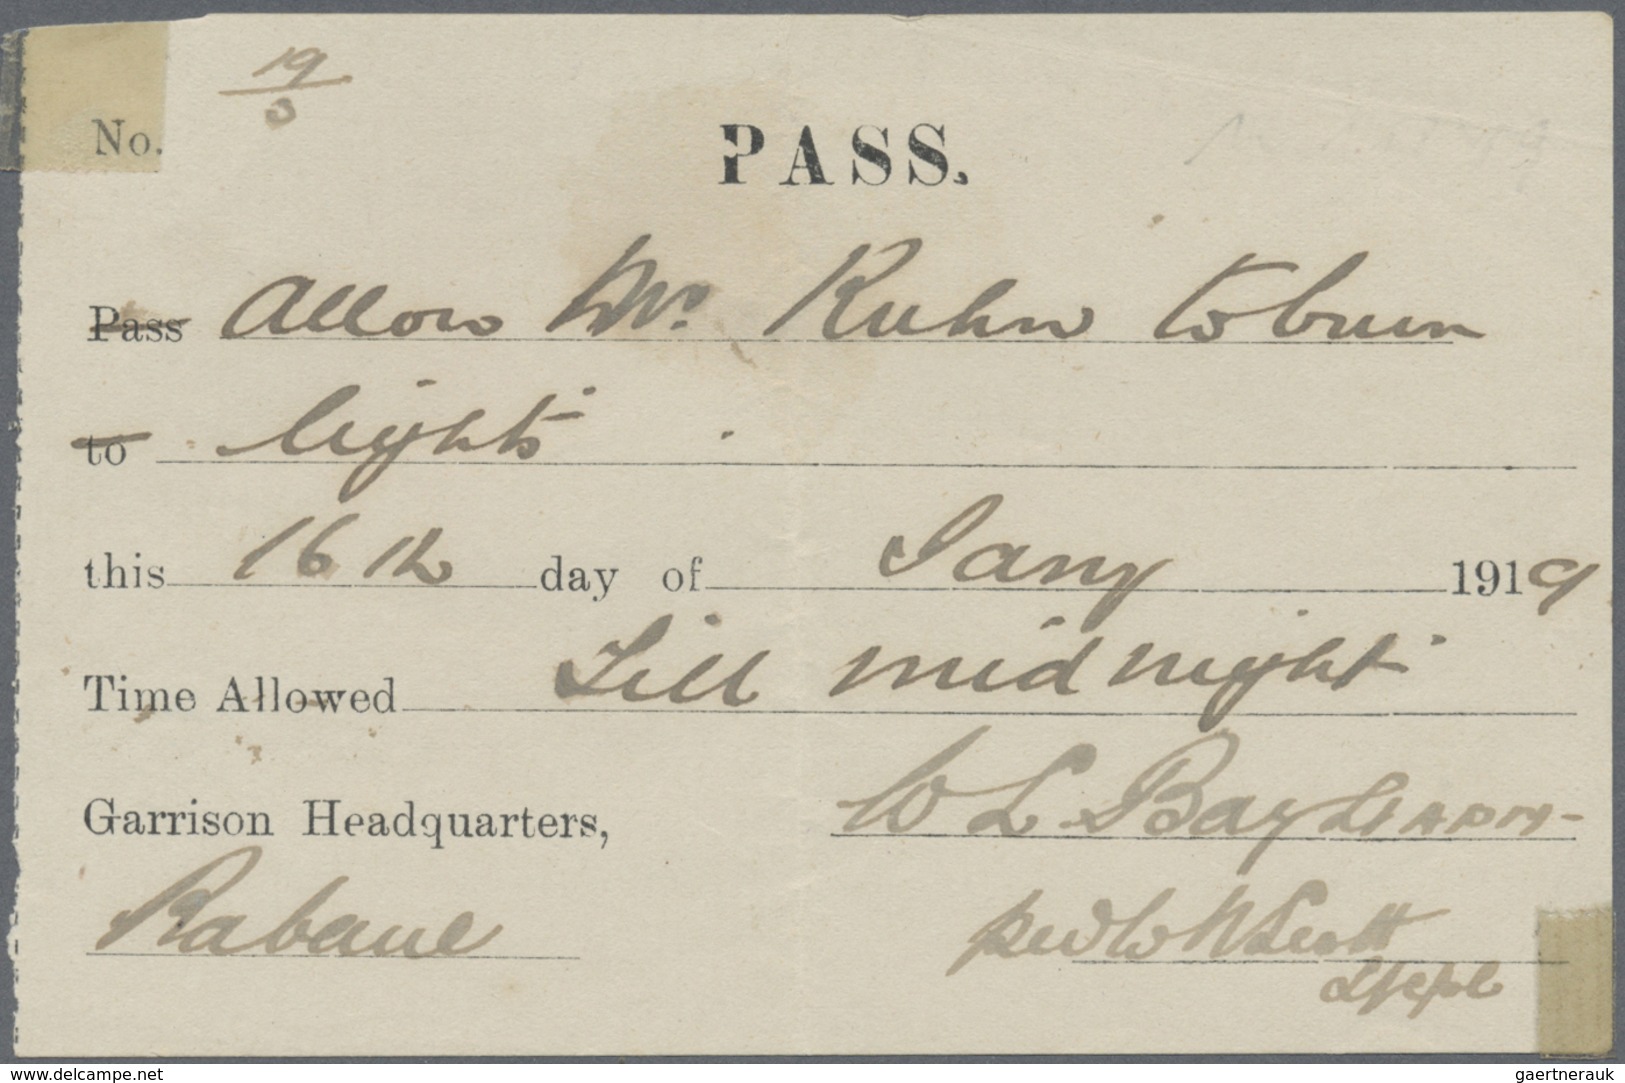 19
3
No.
PASS.
Pass Allow Mr Kuhn to burn
to lights
this 16th day of Jany 1919
Time Allowed Till midnight
Garrison Headquarters, W L Bayly APM
Rabaul
L/Cpl
www.delcampe.net gaertnerauk